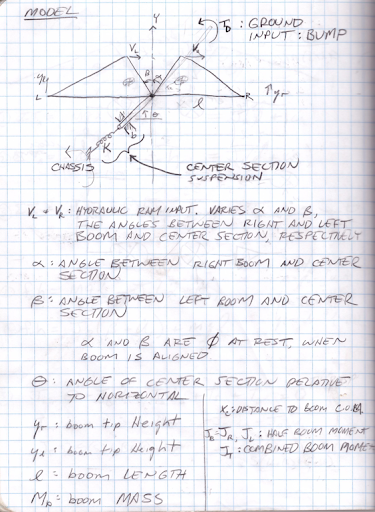 MODEL
Y
T_D : GROUND
INPUT : BUMP
V_L
V_R
β
α
y_L
L
R
↑ y_r
l
θ
b
K
CHASSIS
CENTER SECTION
SUSPENSION
V_L & V_R : HYDRAULIC RAM INPUT. VARIES α AND β,
THE ANGLES BETWEEN RIGHT AND LEFT
BOOM AND CENTER SECTION, RESPECTIVELY
α : ANGLE BETWEEN RIGHT BOOM AND CENTER
SECTION
β : ANGLE BETWEEN LEFT BOOM AND CENTER
SECTION
α AND β ARE ϕ AT REST, WHEN
BOOM IS ALIGNED
θ : ANGLE OF CENTER SECTION RELATIVE
TO HORIZONTAL
y_r = boom tip Height
y_L = boom tip Height
l = boom LENGTH
M_b = boom MASS
X_c : DISTANCE TO BOOM C.O.M.
J_R, J_L : HALF BOOM MOMENT
J_T : COMBINED BOOM MOMENT